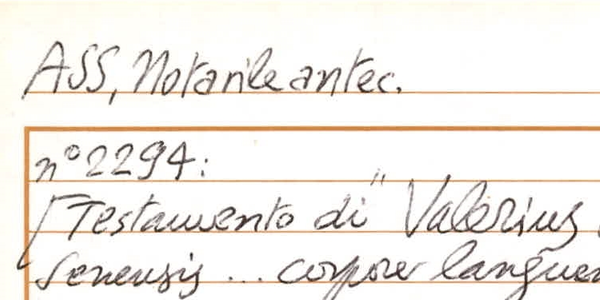 ASS, Notarile antec.
n° 2294:
[Testamento di "Valerius
senensis ... corpore languen